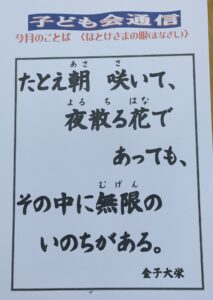 子ども会通信
今月のことば 〈ほとけさまの眼(まなざし)〉
たとえ朝 咲いて、
夜散る花で
あっても、
その中に無限の
いのちがある。
金子大栄